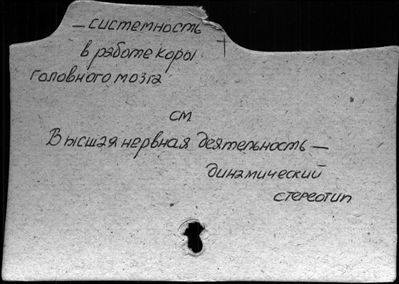 — системность
в работе коры
головного мозга
см
Высшая нервная деятельность —
динамический
стереотип